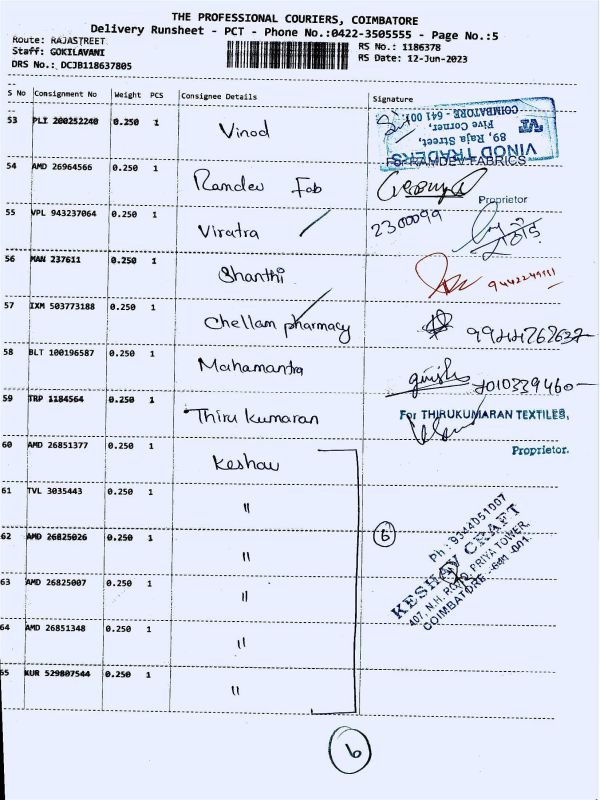 THE PROFESSIONAL COURIERS, COIMBATORE
Delivery Runsheet - PCT - Phone No.:0422-3505555 - Page No.:5
Route: RAJASTREET
Staff: GOKILAVANI
DRS No.: DCJB118637805
RS No.: 1186378
RS Date: 12-Jun-2023
S No Consignment No Weight PCS Consignee Details Signature
53 PLI 200252240 0.250 1 Vinod
VINOD TRADERS
89, Raja Street,
Five Corner,
COIMBATORE - 641 001.
54 AMD 26964566 0.250 1 Ramdev Fab
For RAMDEV FABRICS
Proprietor
55 VPL 943237064 0.250 1 Viratra 2300099
56 MAN 237611 0.250 1 Shanthi 9442249111
57 IXM 503773188 0.250 1 Chellam pharmacy 9944262637
58 BLT 100196587 0.250 1 Mahamantra girish 7010339460
59 TRP 1184564 0.250 1 Thiru Kumaran
For THIRUKUMARAN TEXTILES,
Proprietor.
60 AMD 26851377 0.250 1 Keshav
61 TVL 3035443 0.250 1 "
62 AMD 26825026 0.250 1 " 6
63 AMD 26825007 0.250 1 "
64 AMD 26851348 0.250 1 "
65 KUR 529807544 0.250 1 "
Ph : 9344051007
KESHAV CRAFT
407, N.H. ROAD, PRIYA TOWER,
COIMBATORE - 641 001.
6